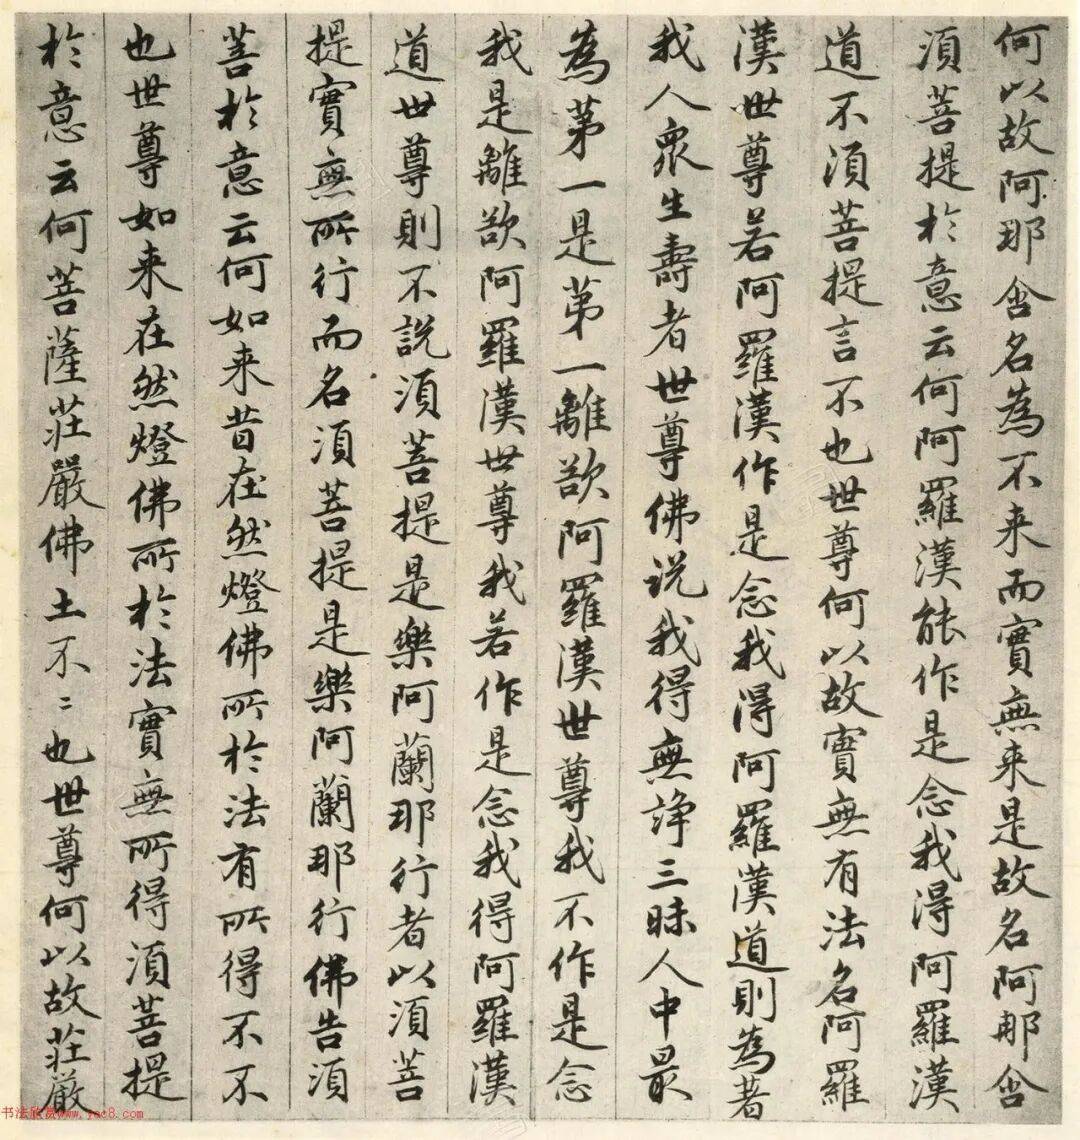 何以故阿那含名為不来而實無来是故名阿那含
須菩提於意云何阿羅漢能作是念我得阿羅漢
道不須菩提言不也世尊何以故實無有法名阿羅
漢世尊若阿羅漢作是念我得阿羅漢道則為著
我人衆生壽者世尊佛説我得無諍三昧人中最
為苐一是苐一離欲阿羅漢世尊我不作是念
我是離欲阿羅漢世尊我若作是念我得阿羅漢
道世尊則不説須菩提是樂阿蘭那行者以須菩
提實無所行而名須菩提是樂阿蘭那行佛告須
菩於意云何如来昔在然燈佛所於法有所得不不
也世尊如来在然燈佛所於法實無所得須菩提
於意云何菩薩莊嚴佛土不〻也世尊何以故莊嚴
书法欣赏www.yac8.com